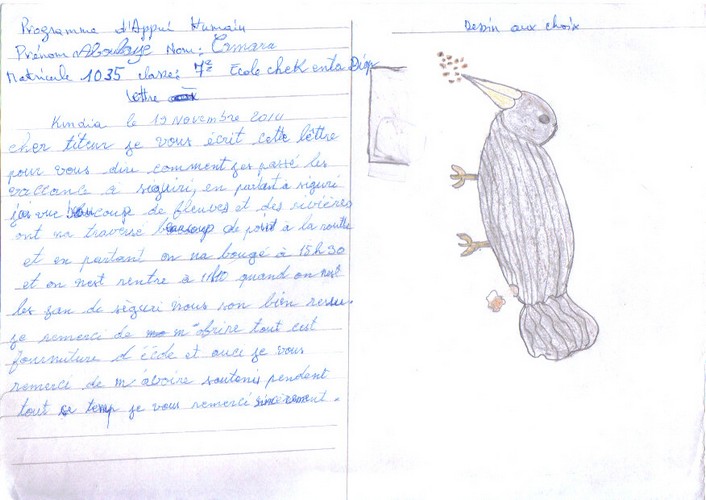 Programme d'Appui Humain
Prénom Aboulaye Nom: Camara
Matricule 1035 classe: 7e Ecole cheK enta Diop
lettre
Kindia le 12 Novembre 2014
cher titeur je vous écrit cette lettre
pour vous dire comment j'es passé les
vaccance à siguiri, en partant à siguiri
j'ai vue beaucoup de fleuves et des rivières
ont na traversé beaucoup de point à la route
et en partant on na bougé à 15h30
et on n'est rentré à quand on n'est
les jan de siguri nous son bien ressu.
je remerci de m'ofrire tout cest
fourniture d'école et auci je vous
remerci de m'avoire soutenis pendent
tout ce temp je vous remerci sincèrement.
Dessin aux choix